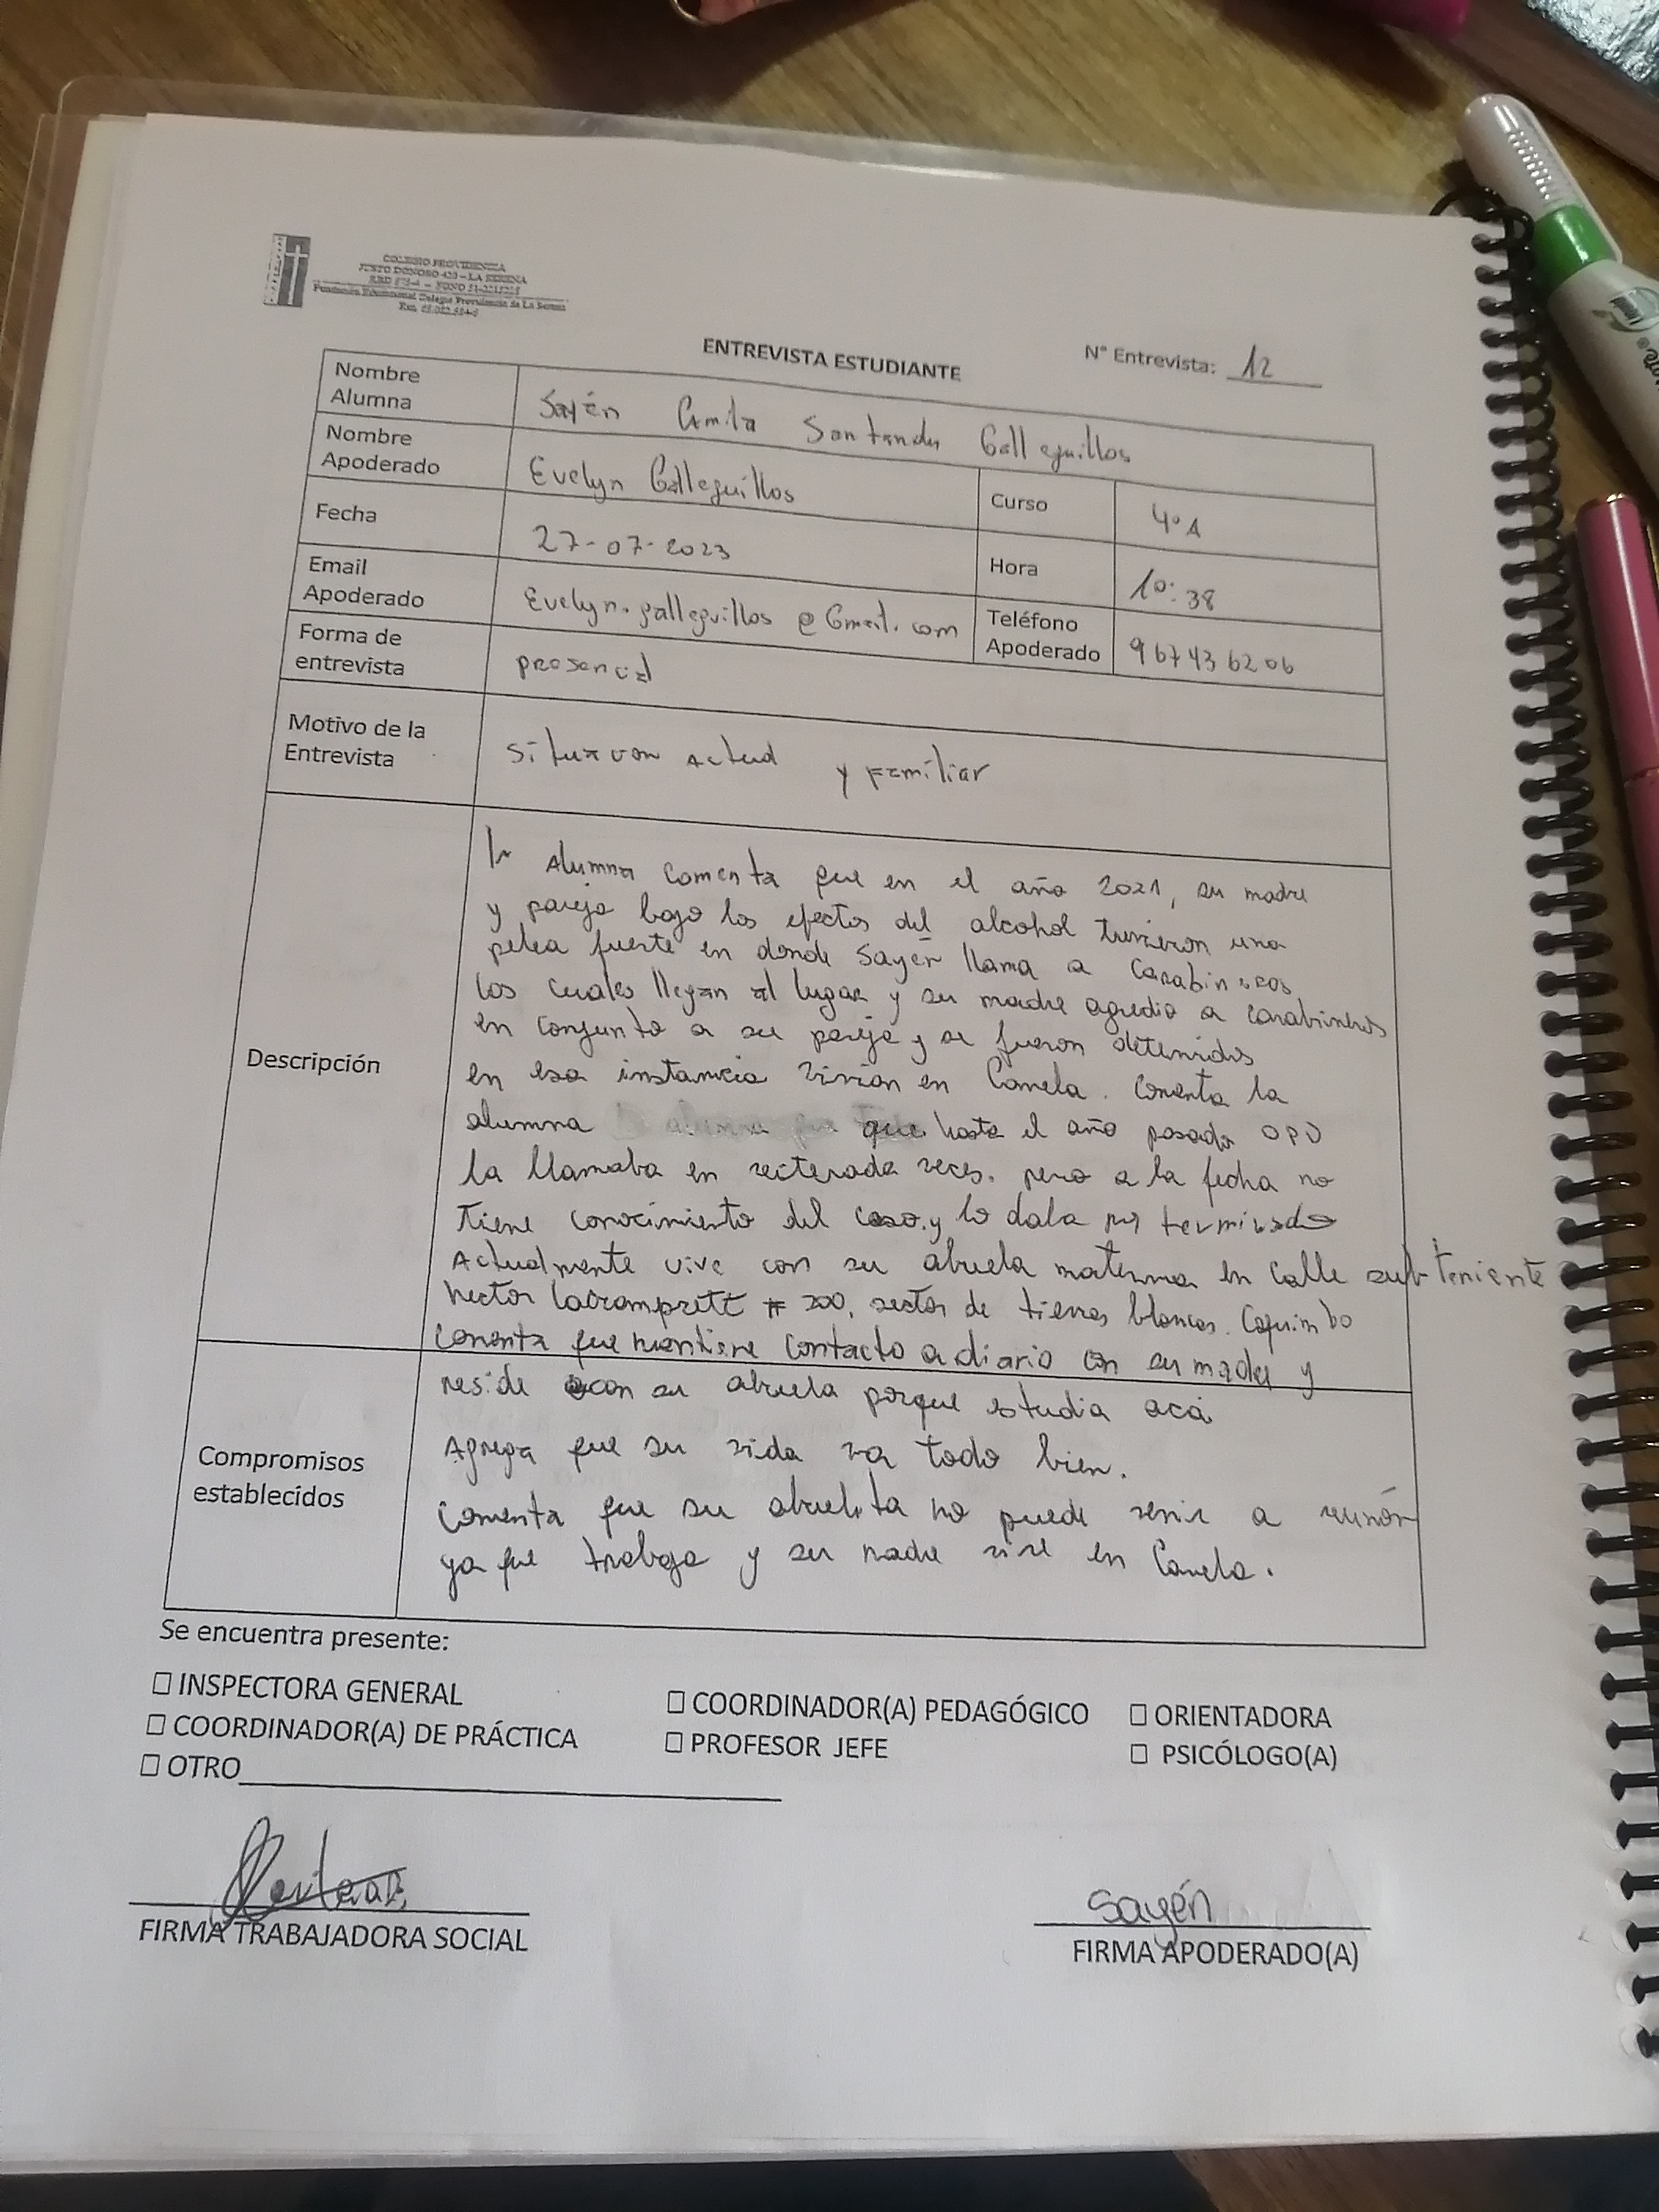 COLEGIO PROVIDENCIA
JUSTO DONOSO 420 – LA SERENA
Fundación Educacional Colegio Providencia de La Serena
ENTREVISTA ESTUDIANTE
N° Entrevista: 12
Nombre Alumna Sayén Camila Santander Galleguillos
Nombre Apoderado Evelyn Galleguillos
Curso 4°A
Fecha 27-07-2023
Hora 10:38
Email Apoderado Evelyn.galleguillos@Gmail.com
Teléfono Apoderado 967436206
Forma de entrevista presencial
Motivo de la Entrevista Situacion Actual y Familiar
Descripción
la Alumna comenta que en el año 2021, su madre
y pareja bajo los efectos del alcohol tuvieron una
pelea fuerte en donde Sayén llama a Carabineros
los cuales llegan al lugar y su madre agredio a carabineros
en conjunto a su pareja y se fueron detenidos
en esa instancia vivian en Canela. Comenta la
alumna que hasta el año pasado OPD
la llamaba en reiterada veces. pero a la fecha no
tiene conocimiento del caso y lo daba por terminado
Actualmente vive con su abuela materna en calle subteniente
hector # 200, sector de tierras blancas. Coquimbo
Comenta que mantiene contacto a diario con su madre y
reside con su abuela porque estudia acá
Compromisos establecidos
Agrega que su vida va todo bien.
Comenta que su abuelita no puede venir a reunión
ya que trabaja y su madre vive en Canela.
Se encuentra presente:
☐ INSPECTORA GENERAL ☐ COORDINADOR(A) PEDAGÓGICO ☐ ORIENTADORA
☐ COORDINADOR(A) DE PRÁCTICA ☐ PROFESOR JEFE ☐ PSICÓLOGO(A)
☐ OTRO
Sayén
FIRMA TRABAJADORA SOCIAL
FIRMA APODERADO(A)